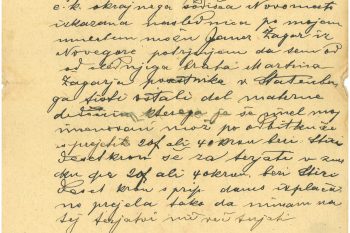 c. k. okrajnega sodišča Novomesto
izkazana naslednica po mojem
umrlem možu Janez Žagar iz
Novegore potrjujem da sem od
od njega brata Martina
Žagarja posestnika v
ga tisti ostali del materne
je še imel moj
imenovan mož po odbitku še
prejetih 20 fl ali 40 kron beri Štiri
deset kron še za terjati v znes
ku per 20 fl ali 40 kron, beri Štiri
deset kron s prip danes izplača
no prejela tako da nimam na
tej terjatvi nič več terjati